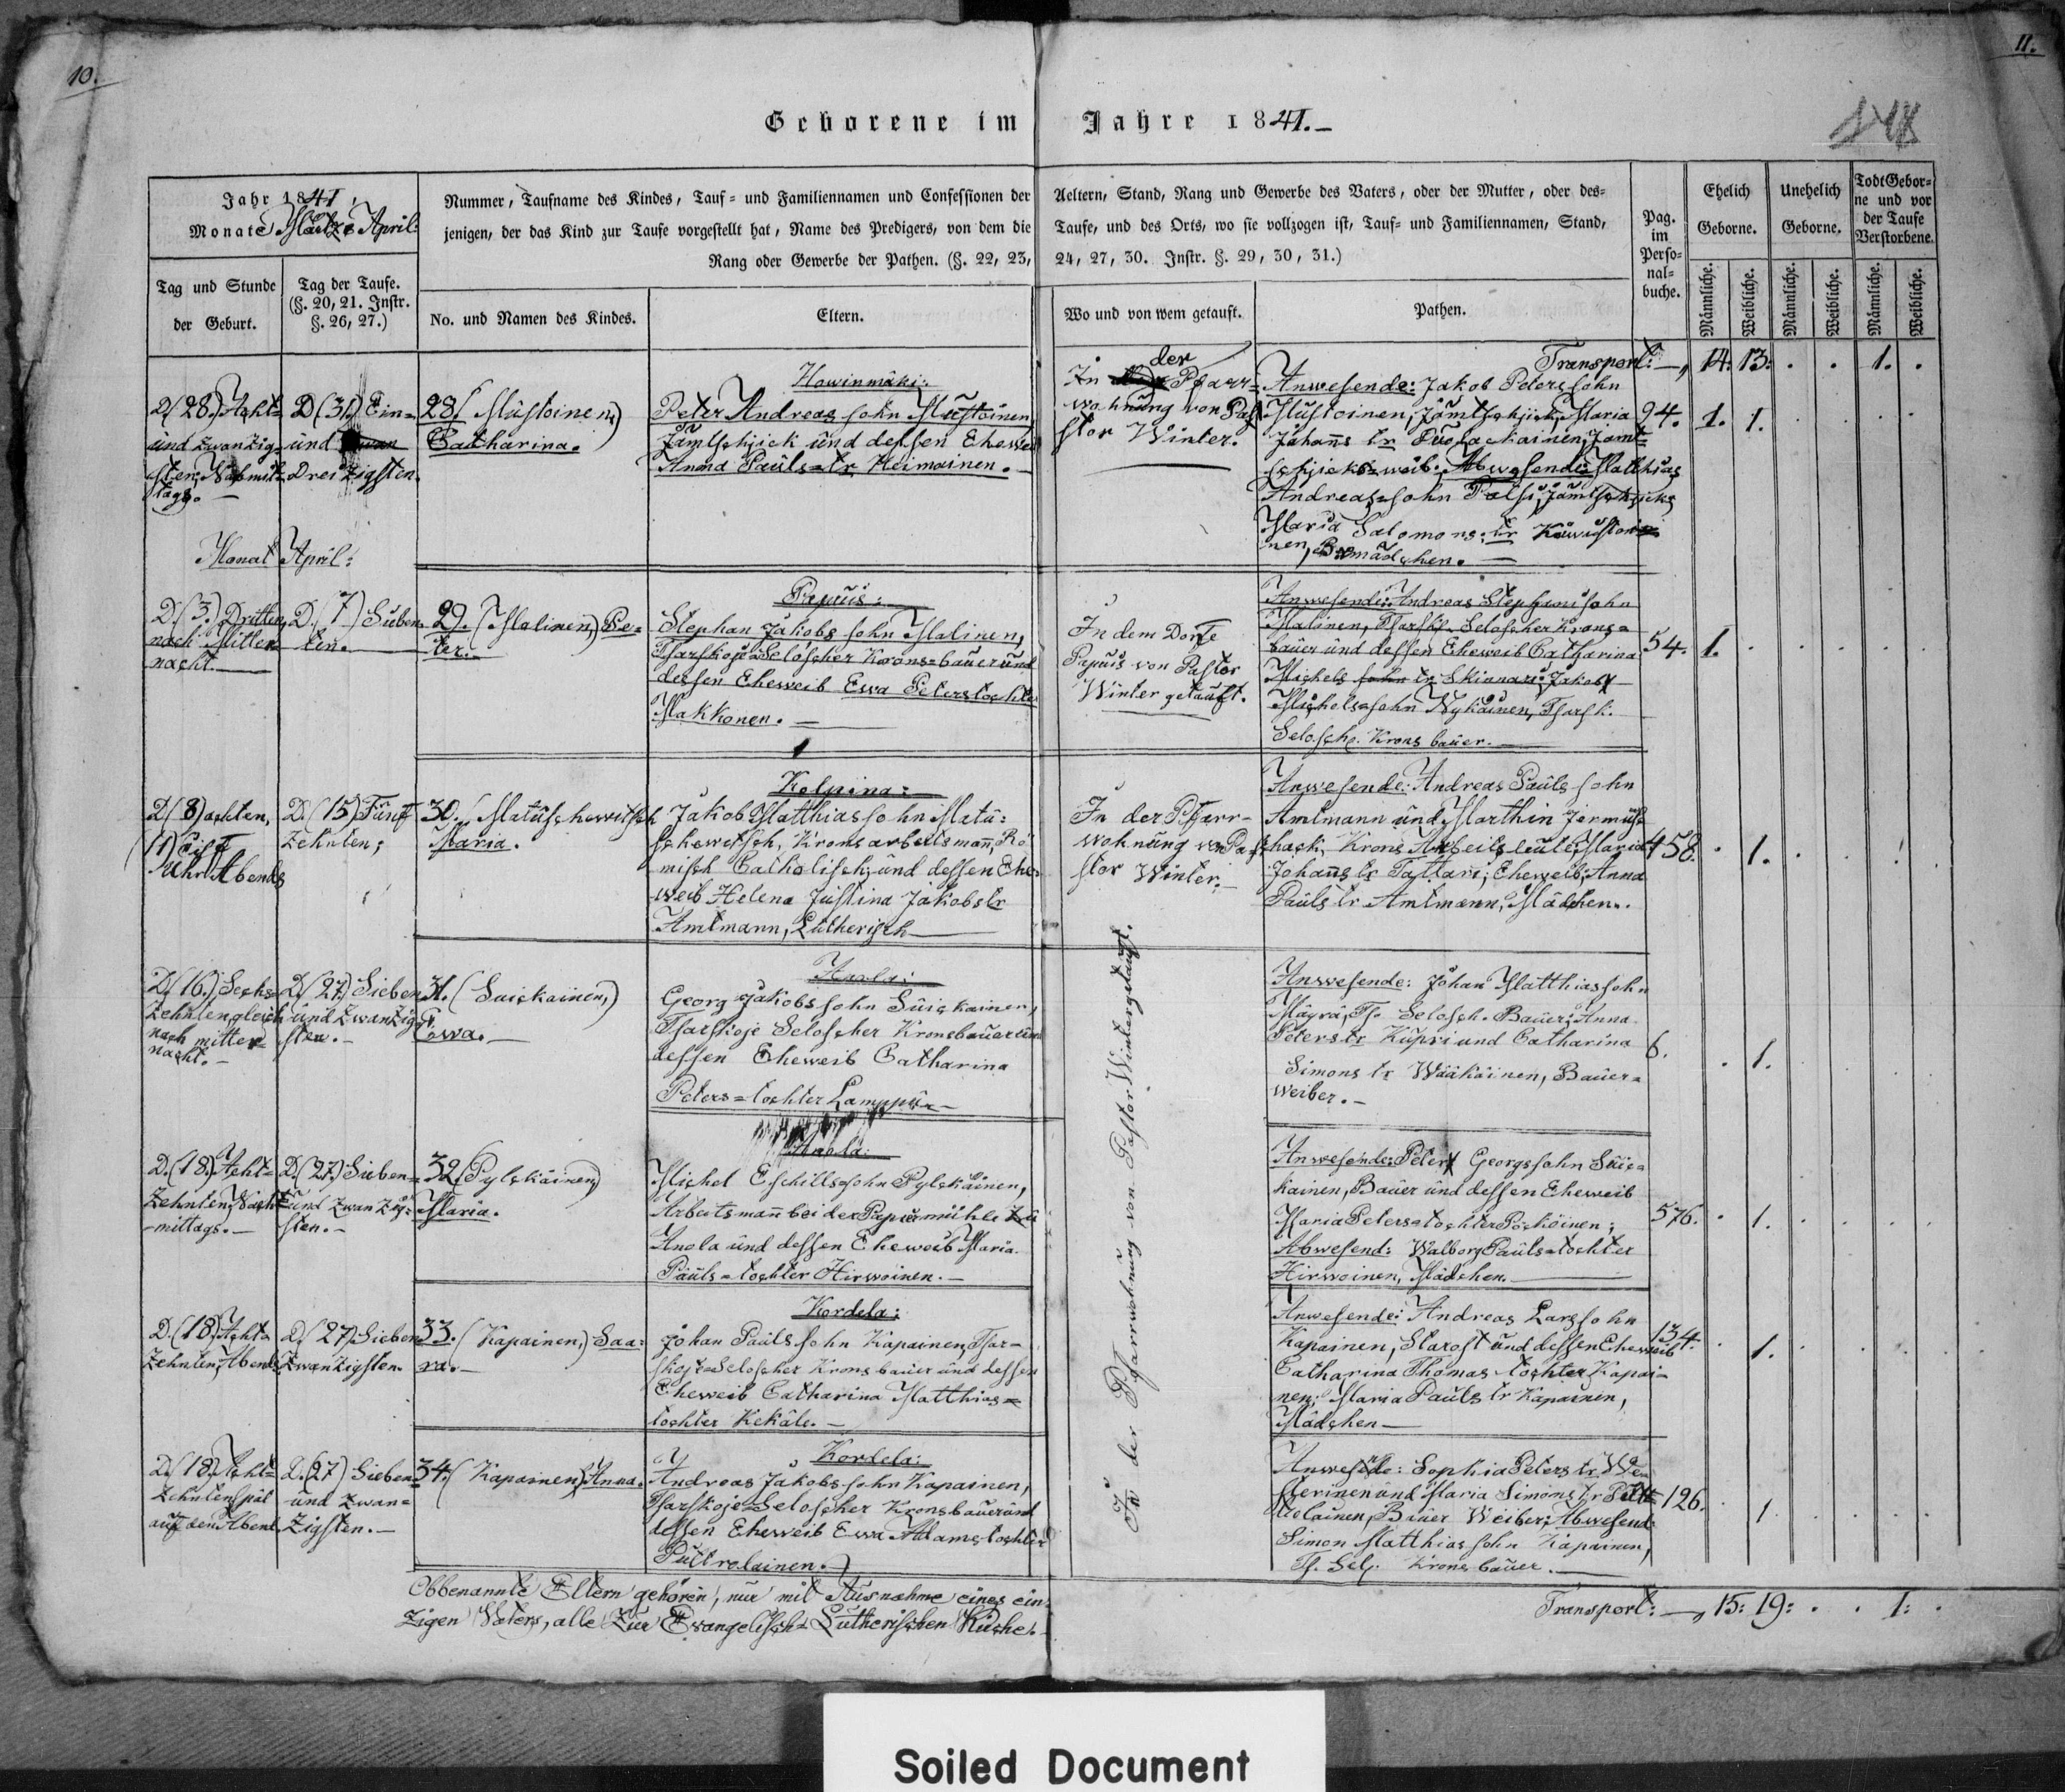 10.
11.
Geborene im Jahre 1841.-
148
Jahr 1841,
Monate Maertz & April:
Nummer, Taufname des Kindes, Tauf- und Familiennamen und Confessionen der Aeltern, Stand, Rang und Gewerbe des Vaters, oder der Mutter, oder des-
jenigen, der das Kind zur Taufe vorgestellt hat, Name des Predigers, von dem die Taufe, und des Orts, wo sie vollzogen ist, Tauf- und Familiennamen, Stand,
Rang oder Gewerbe der Pathen. (§. 22, 23, 24, 27, 30. Instr. §. 29, 30, 31.)
Pag. im Perso-nal-buche.
Ehelich Geborne.
Unehelich Geborne.
Todt Gebor-ne und vor der Taufe Verstorbene.
Tag und Stunde der Geburt.
Tag der Taufe. (§. 20, 21. Instr. §. 26, 27.)
No. und Namen des Kindes.
Eltern.
Wo und von wem getauft.
Pathen.
Männliche. Weibliche. Männliche. Weibliche. Männliche. Weibliche.
Transport: —, 14. 13. . . 1. .
D (28.) Acht-
und zwanzig-
sten, Nachmit-
tags.—
D (31.) Ein-
und
Dreizigsten.
28. (Mustoinen,)
Catharina.
Howinmäki:
Peter Andreas sohn Mustoinen,
Jämtschjick und dessen Eheweib
Anna Pauls-tr Heimainen.—
In der Pfarr-
wohnung von Pa-
stor Winter.
Anwesende: Jakob Peters sohn
Mustoinen, Jämtschjick, Maria
Johanns tr Puolackainen, Jämt-
schjicks weib; Abwesende: Matthias
Andreas-sohn Talsi, Jämtschjick,
Maria Salomons tr
nen, B. mädchen.—
94. 1. 1.
Monat April:
D (3.) Dritten,
nach Mitter-
nacht.
D. (7) Sieben-
ten.
29. (Malinen,) Pe-
ter.-
Papuis:
Stephan Jakobs sohn Malinen,
Tsarskoje-Seloscher Krons-bauer und
dessen Eheweib Ewa Peterstochter
Makkonen.—
In dem Dorfe
Papuis von Pastor
Winter getauft.
Anwesende: Andreas Stephani sohn
Malinen, Tsarsk. Seloscher Krons-
bauer und dessen Eheweib Catharina
Michels sohn tr Skinnari; Jakob
Michels-sohn Nykäinen, Tsarsk.
Selosche. Krons bauer.—
54. 1. . . . . .
D (8) achten,
(11) Eilf
Uhr Abends
D. (15) Fünf-
zehnten;
30. (Matuschewitsch
Maria.
Kolpina:
Jakob Matthias sohn Matu-
schewitsch, Krons arbeitsmann, Rö-
misch Catholisch; und dessen Ehe-
weib Helena Justina Jakobs tr
Amtmann, Lutherisch—
In der Pfarr-
wohnung von Pa-
stor Winter.-
Anwesende: Andreas Pauls sohn
Amtmann und Marthin Jermusch-
hack, Krons Arbeitsleute; Maria
Johanns tr Tattari, Eheweib; Anna
Pauls tr Amtmann, Mädchen.
458. . 1. . . . .
D (16.) Sechs-
zehnten gleich
nach mitter-
nacht.—
D. (27.) Sieben
und zwanzig-
sten.—
31. (Suickainen,)
Ewa.—
Anola:
Georg Jakobs sohn Suickainen,
Tsarskoje Seloscher Kronsbauer und
dessen Eheweib Catharina
Peters-tochter Lamppu—
In der Pfarrwohnung von Pastor Winter getauft.
Anwesende: Johan Matthias sohn
Mäyrä, Ts. Selosch. Bauer; Anna
Peters tr Kupri und Catharina
Simons tr Wääkäinen, Bauer-
weiber.—
6. . 1. . . . .
D. (18.) Acht-
zehnten, Nach-
mittags.—
D (27.) Sieben-
und zwanzig-
sten.-
32. (Pylckäinen)
Maria.
Anola:
Michel Eschills-sohn Pylckäinen,
Arbeitsmann bei der Papiermühle zu
Anola und dessen Eheweib Maria
Pauls-tochter Hirwoinen.—
Anwesende: Peter Georgssohn Suic-
kainen, Bauer und dessen Eheweib
Maria Peters-tochter Pöcköinen;
Abwesend: Walborg Pauls-tochter
Hirwoinen, Mädchen.—
576. . 1. . . . .
D. (18) Acht-
zehnten, Abends
D. (27) Sieben
zwanzigsten.
33. (Kapainen,) Saa-
ra.-
Kordela:
Johan Pauls sohn Kapainen, Tsar-
skoje-Seloscher Krons bauer und dessen
Eheweib Catharina Matthias-
tochter Kekäle.—
Anwesende: Andreas Lars sohn
Kapainen, Starost und dessen Eheweib
Catharina Thomas-tochter Kapai-
nen; Maria Pauls tr Kapainen,
Mädchen—
134. . 1. . . . .
D. (18) Acht-
zehnten spät
auf den Abend
D. (27) Sieben-
und zwan-
zigsten.—
34. (Kapainen) Anna.
Kordela:
Andreas Jakobs sohn Kapainen,
Tsarskoje-Seloscher Kronsbauer und
dessen Eheweib Ewa Adams-tochter
Puttrolainen.
Anwesende: Sophia Peters tr We-
sterinen und Maria Simons tr
Bauer Weiber; Abwesend:
Simon Matthias sohn Kapainen,
Ts. Sel. Krons bauer.—
126. . 1. . . . .
Obbenannte Eltern gehören, nur mit Ausnahme eines ein-
zigen Vaters, alle zur Evangelisch-Lutherischen Kirche.
Transport: —, 15: 19: . . 1: .
Soiled Document